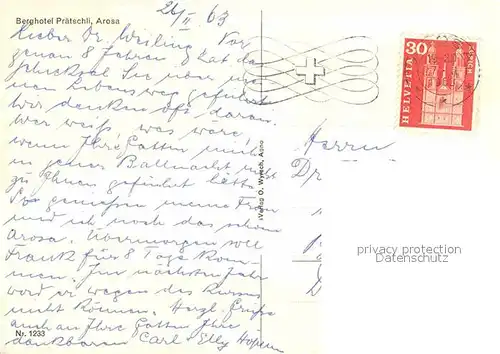 Berghotel Prätschli, Arosa
26/II 63
Lieber Dr. Weiling Vor
genau 8 Jahren hat das
Schicksal Sie über unse-
nen Lebensweg geführt
Wir denken oft daran.
Wer weiß was wäre
wenn Ihre Gattin mich
in jener Ballnacht nicht
zu Ihnen geführt hätte.
So genießen meine Frau
und ich noch das schöne
Arosa. Übermorgen soll
Frank für 8 Tage kom-
men. Im nächsten Jahr
wird er wegen des Kurses
nicht können. Herzl. Grüße
auch an Ihre Gattin Ihre
dankbaren Carl + Elly
Nr. 1233
Verlag O. Wyrsch, Agno
HELVETIA
30
Herrn
Dr
privacy protection
Datenschutz